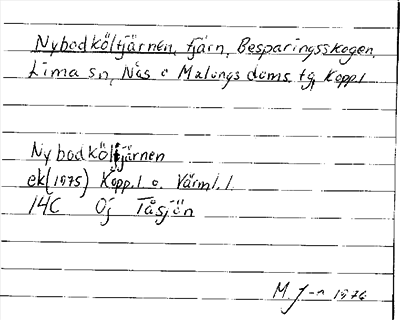 Nybodköltjärnen, tjärn, Besparingsskogen,
Lima sn, Nås o Malungs doms. tg, Kopp.l
Nybodköltjärnen
ek(1975) Kopp.l. o. Värml. l.
14C Öj Tåsjön
M. J-n 1976